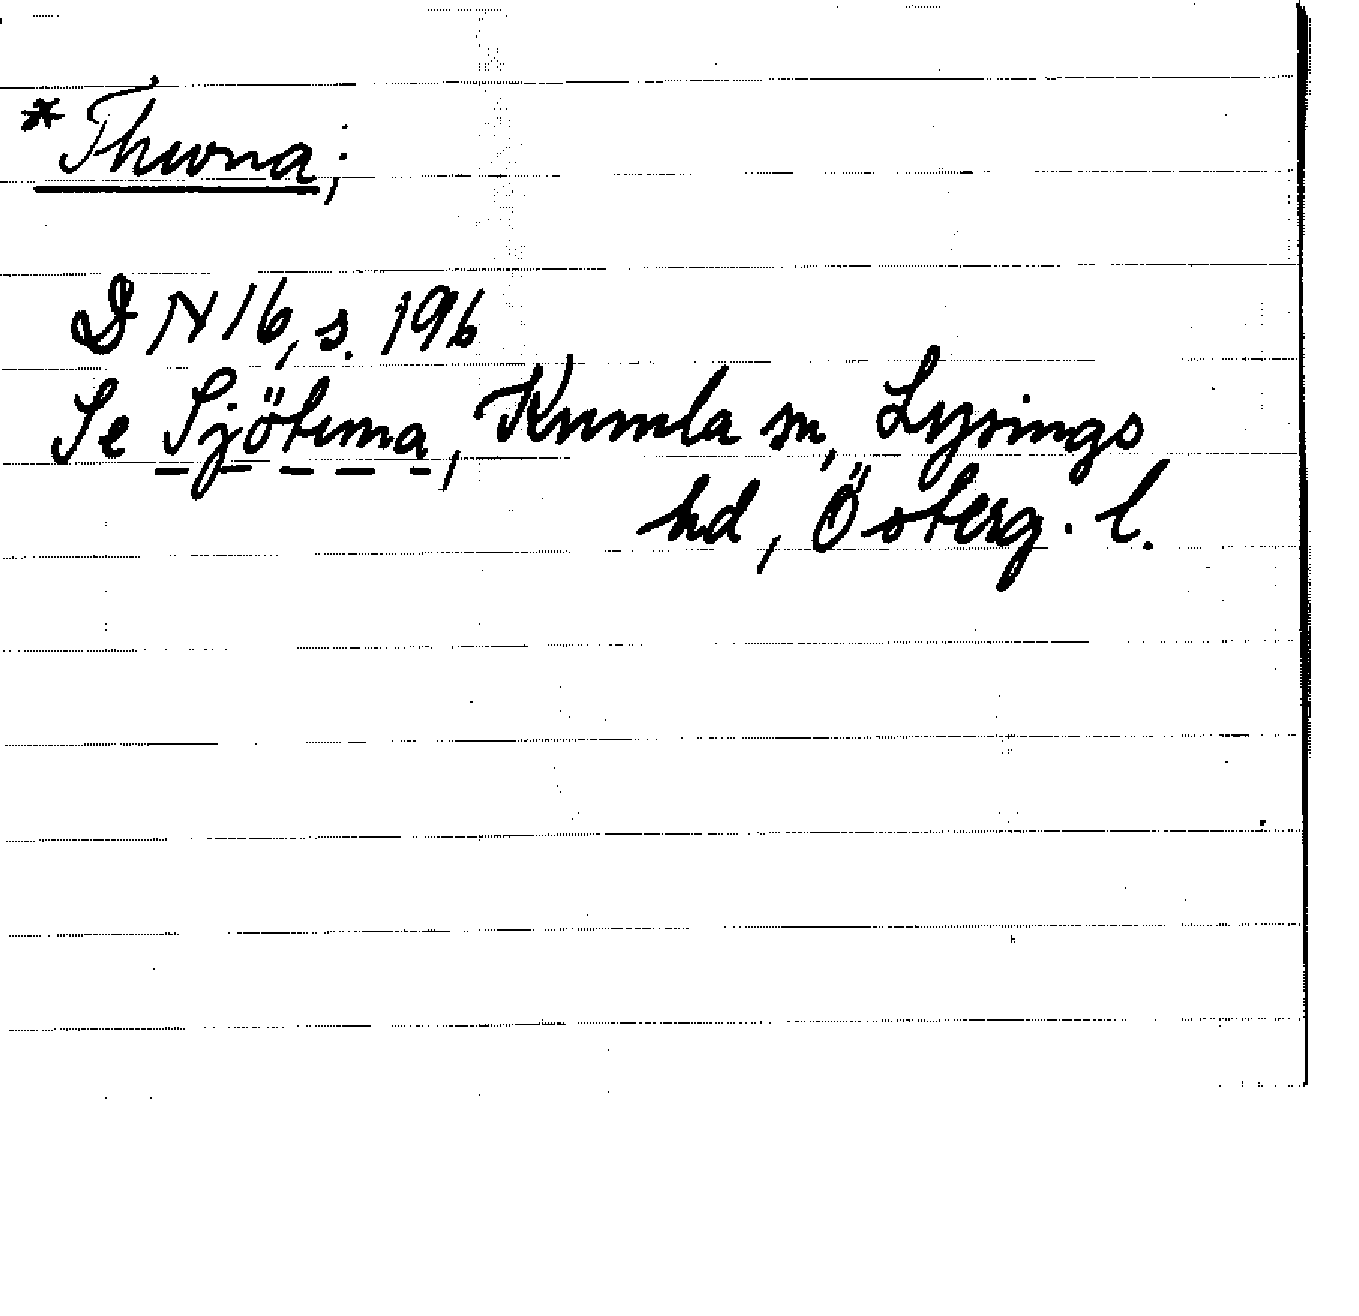 *Thwna;
DN 16, s. 196
Se Sjötuna, Kumla sn, Lysings
hd, Österg. l.